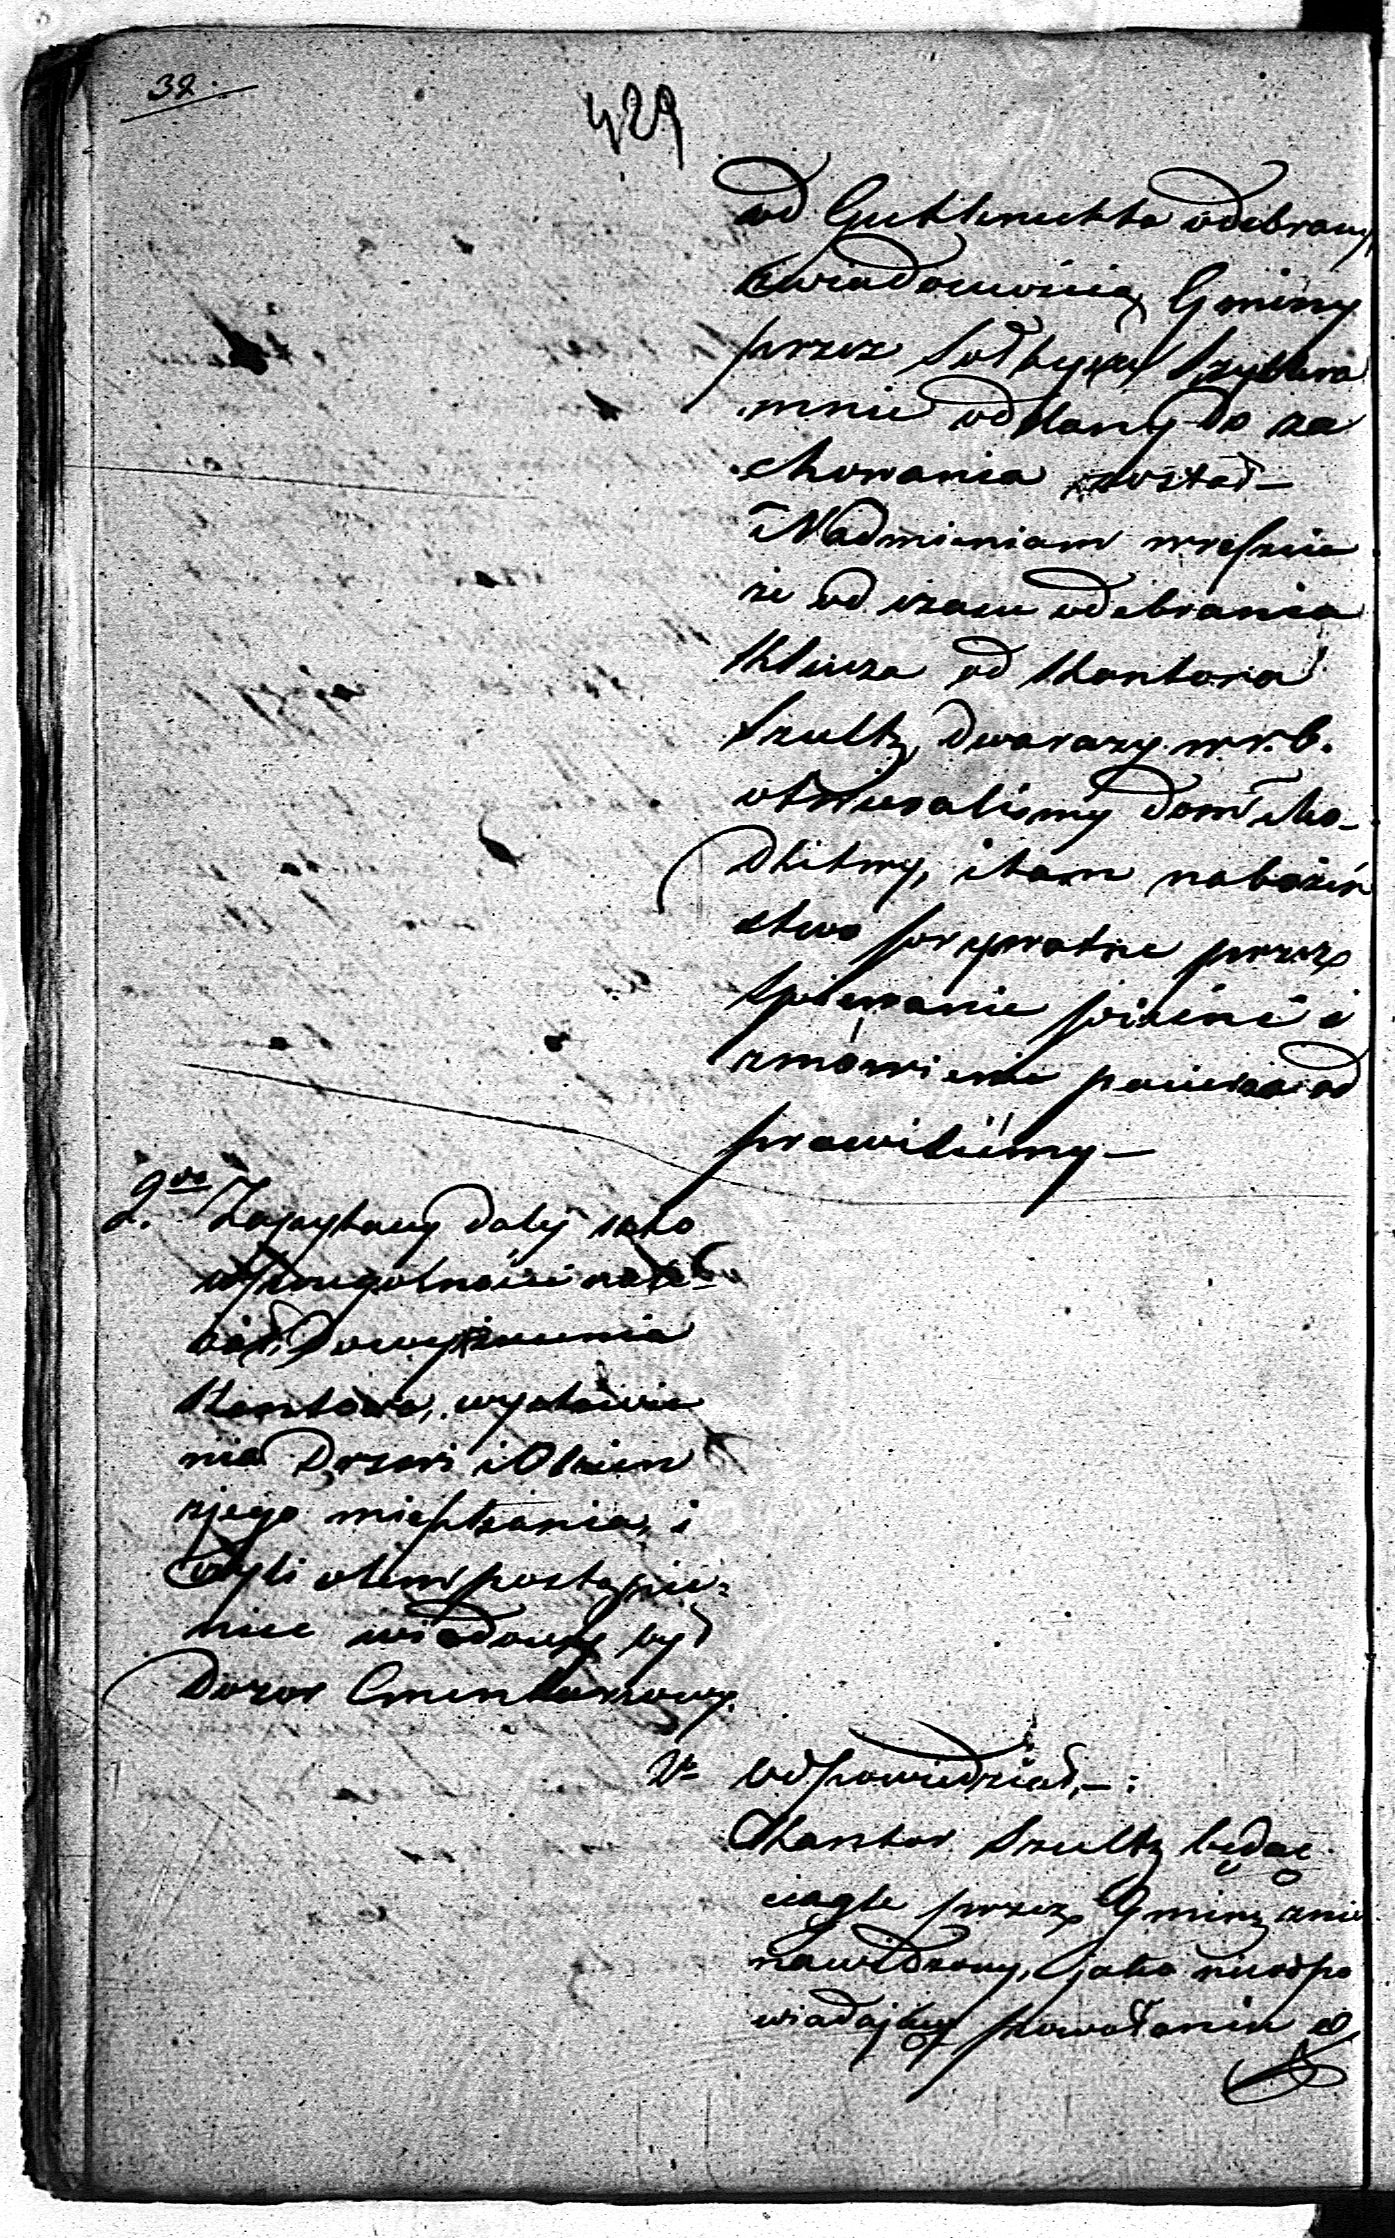 38.
429
od Gutknechta odebrany
z wiadomością Gminy
przez Sołtysa Szyllera
mnie oddany do za
chowania został –
Nadmieniam wreszcie
że od czasu odebrania
Klucza od Kantora
Szultz dwarazy w r. b.
otwieraliśmy dom Mo-
dlitwy, i tam nabożeń
stwo prywatne przez
śpiewanie pieśni i
zmówienie pacierza od
prawiliśmy –
2. Zapytany daly jako
w szczególności nale-
żał do wyrzucenia
Kantora, wystawie
nia Drzwi i Okien
z jego mieszkania, i
czyli o tem postąpie-
niu wiadomy był
Dozor Cmentarzowy.
Odpowiedział, – :
Kantor Szultz będąc
ciągle przez Gminę znie
nawidzony, jako nieodpo
wiadający powołaniu